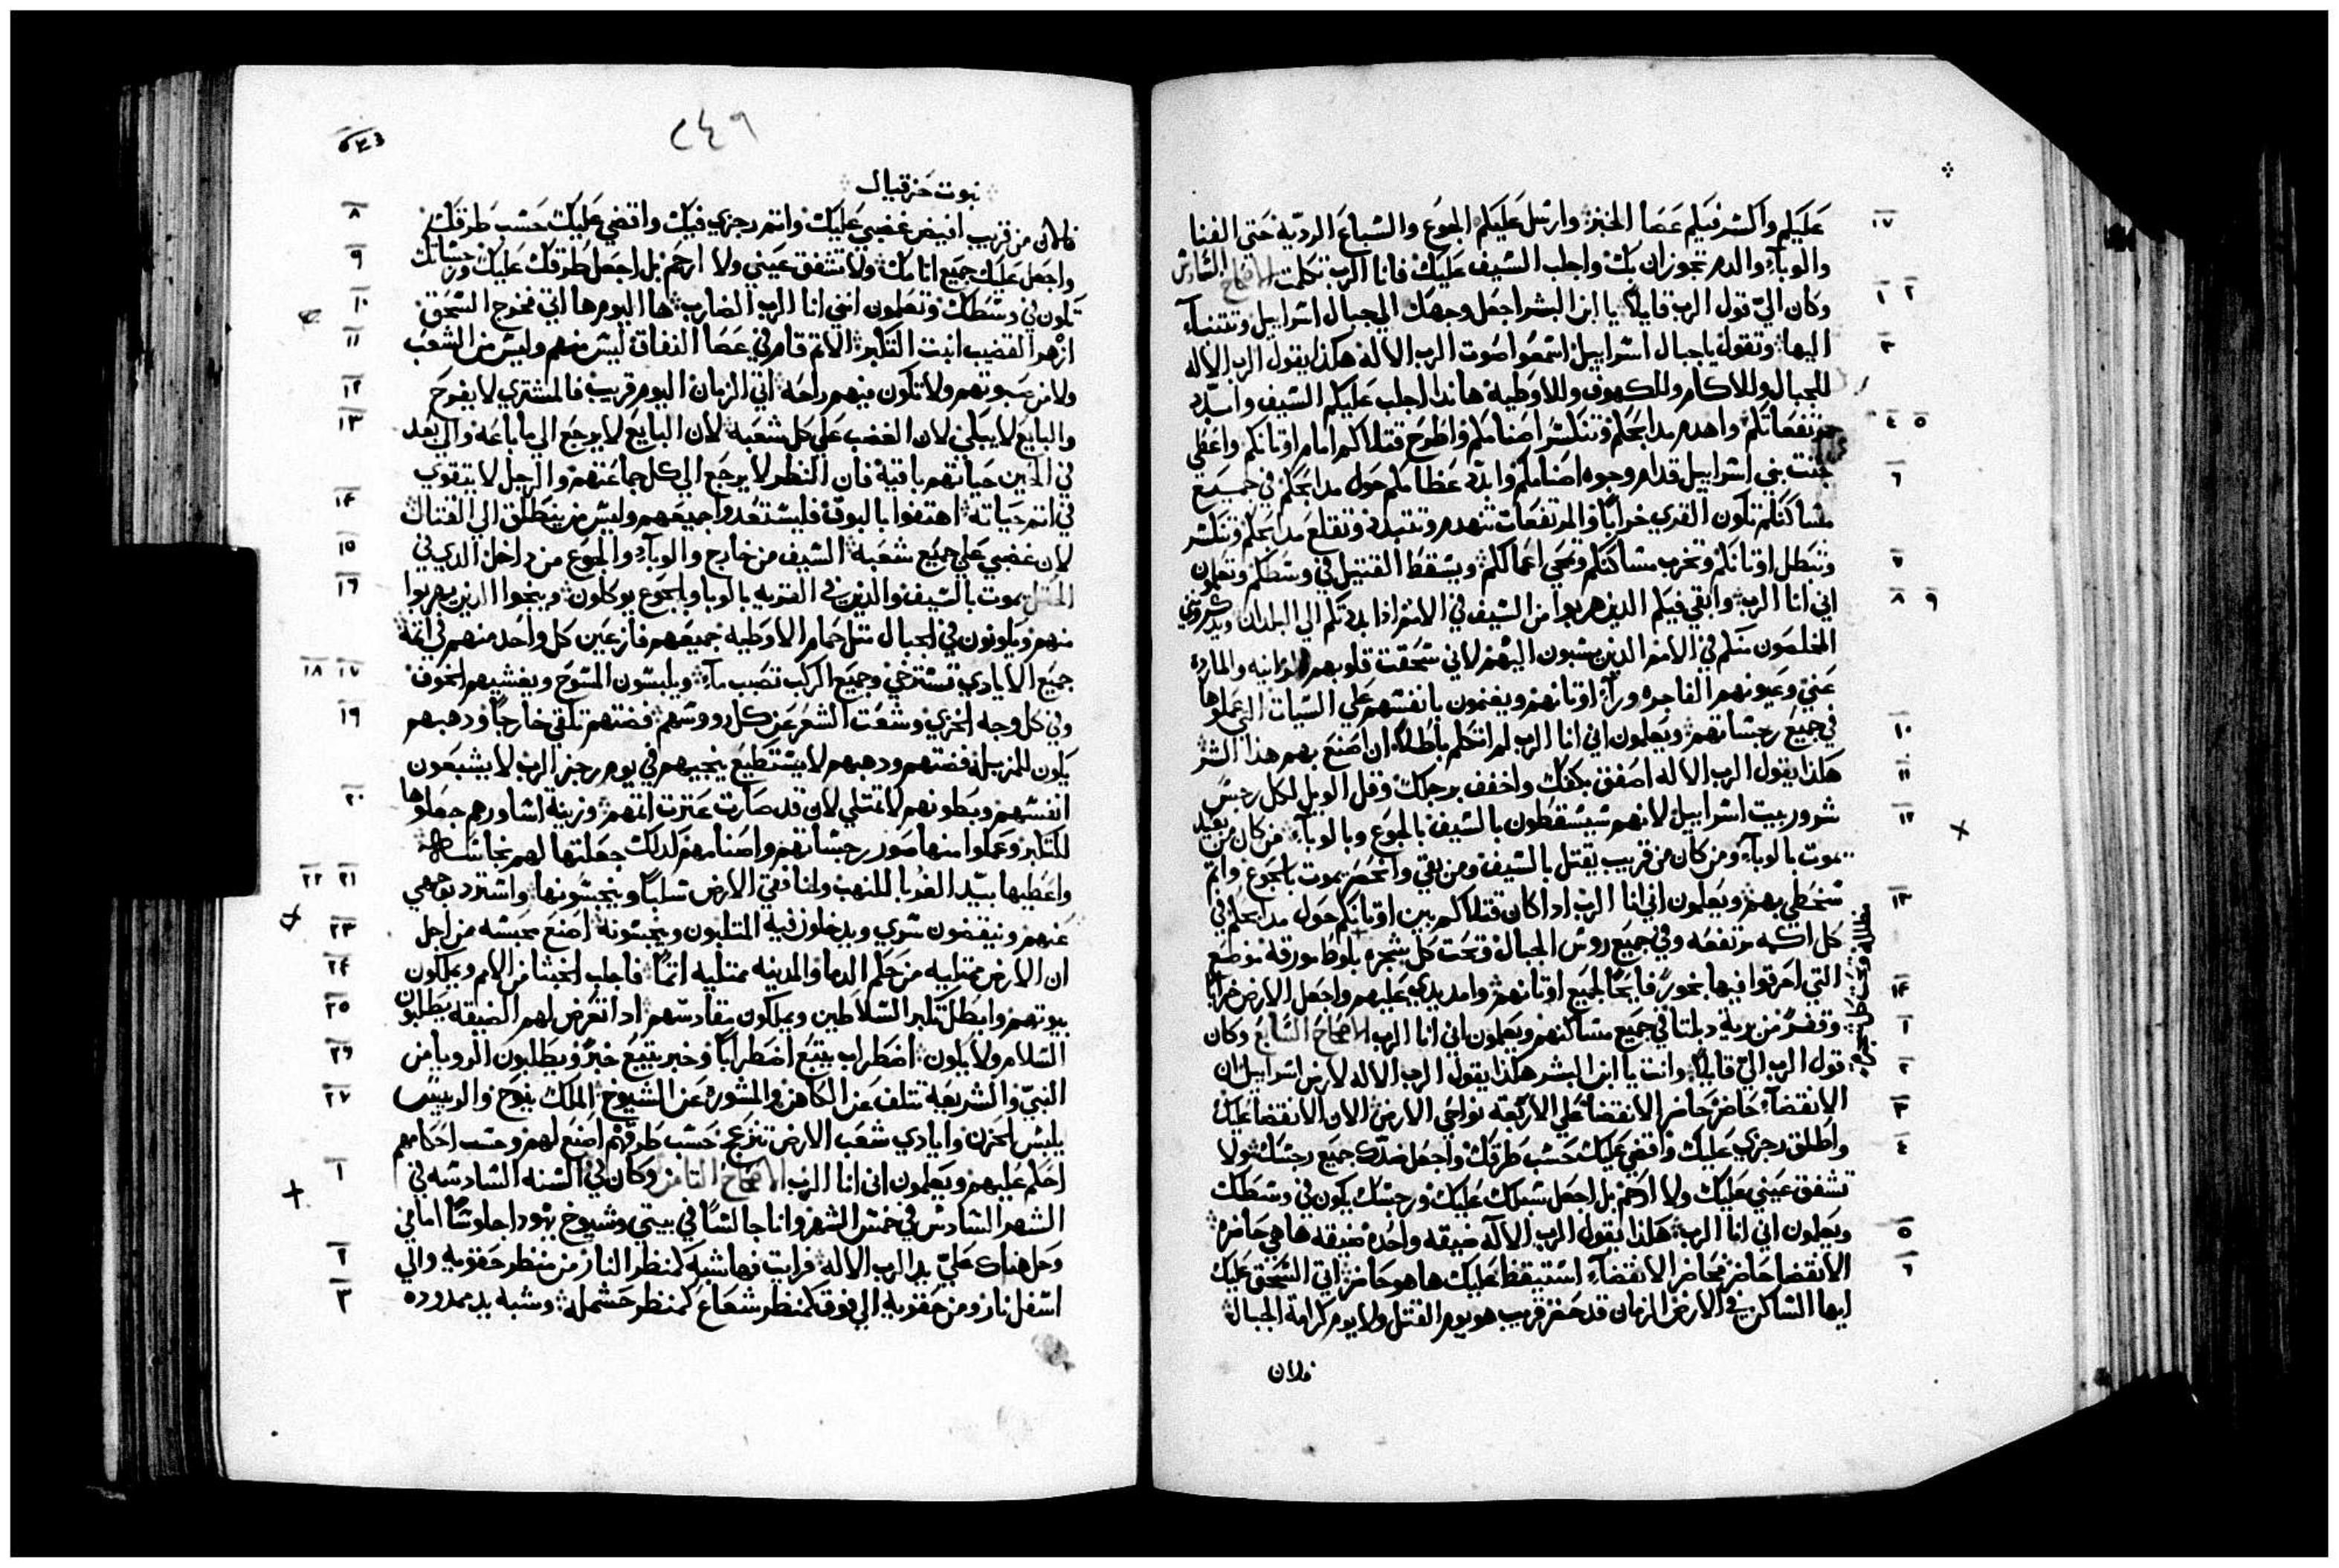 عليكم واكسر فيكم عصا الخبز وارسل عليكم الجوع والسباع الرديّة حتي الفنا ١٧
والوبآء والدم تجوزان بك واجلب السيف عليك فانا الرب تكلمت الاصحاح السادس
وكان اليّ قول الرب قايلاً يا ابن البشر اجعل وجهك الي جبال اسراييل وتتنبآء ١ ٢
اليها وتقول يا جبال اسراييل اسمعوا صوت الرب الاله هكذا يقول الرب الاله ٣
للجبال وللاكام وللكهوف وللاوطية هانذا اجلب عليكم السيف وابدّد
مرتفعاتكم واهدم مدابحكم وتنكسر اصنامكم واطرح قتلاكم امام اوثانكم واعطي ٤ ٥
جثت بني اسراييل قدام وجوه اصنامكم وابدّد عظامكم حول مدابحكم في جميع ٦
مساكنكم تكون القري خراباً والمرتفعات تنهدم وتتبدد وتقلع مدابحكم وتنكسر
وتبطل اوثانكم وتخرب مساكنكم وتمحي اعمالكم ويسقط القتيل في وسطكم وتعلمون ٧
اني انا الرب وابقي فيكم الذين هربوا من السيف في الامم اذا بددتكم الي البلدان ويذكروني ٨ ٩
المخلصون منكم في الامم الذين يسبون اليهم لاني سحقت قلوبهم الزانيه والمارده
عني وعيونهم الفاجره ورآء اوثانهم ويغتمون بانفسهم علي السيات التي عملوها
في جميع رجساتهم ويعلمون اني انا الرب لم اتكلم باطلاً ان اصنع بهم هذا الشر ١٠
هكذا يقول الرب الاله اصفق بكفك واخفف برجلك وقل الويل لكل رجس ١١
شرور بيت اسراييل لانهم سيسقطون بالسيف بالجوع وبالوبآء من كان من بعيد ١٢
يموت بالوبآء ومن كان من قريب يقتل بالسيف ومن بقي وانحصر يموت بالجوع واتم
سخطي بهم ويعلمون اني انا الرب اذا كان قتلاكم بين اوثانكم حول مدابحكم في ١٣
كل اكمه مرتفعه وفي جميع روس الجبال وتحت كل شجره بلوط مورقة موضع
التي احرقوا فيها بخور فايحاً لجميع اوثانهم وامد يدي عليهم واجعل الارض خراباً ١٤
وقفر من برية دبلتا في جميع مساكنهم ويعلمون اني انا الرب الاصحاح السابع وكان ١
قول الرب اليّ قايلاً وانت يا ابن البشر هكذا يقول الرب الاله لارض اسراييل ان ٢
الانقضآء حاضر حاضر الانقضا علي الاربعة نواحي الارض الان الانقضا عليك ٣
واطلق رجزي عليك واقضي عليك حسب طرقك واجعل ضدّك جميع رجسك ولا ٤
تشفق عيني عليك ولا ارحم بل اجعل سبلك عليك ورجسك يكون في وسطك
ويعلمون اني انا الرب هكذا يقول الرب الاله ضيقه واحده ضيقه ها هي حاضره ٥
الانقضا حاضر حاضر الانقضآء استيقظ عليك ها هو حاضر اتي السحق عليك ٦
ايها الساكن في الارض الزمان قد حضر قريب هو يوم القتل ولا يوم كرامة الجبال
فالان
٢٤٩
نبوت حزقيال
فالان من قريب افيض غضبي عليك واتم رجزي فيك واقضي عليك حسب طرقك ٨
واجعل عليك جميع اثامك ولا تشفق عيني ولا ارحم بل اجعل طرقك عليك ورجساتك ٩
تكون في وسطك وتعلمون انني انا الرب الضارب ها اليوم ها اتي فخرج السحق ١٠
ازهر القضيب انبت التكبر الاثم قام في عصا النفاق ليس منهم وليس من الشعب ١١
ولا من صوتهم ولا تكون فيهم راحة اتي الزمان اليوم قريب فالمشتري لا يفرح ١٢
والبايع لا يبكي لان الغضب علي كل شعبه لان البايع لا يرجع الي ما باعه والي بعد ١٣
في الحين حياتهم باقية فان النظر لا يرجع الي كل جماعتهم والرجل لا يتقوي
في اثم حياته اهتفوا بالبوق فليستعدوا جميعهم وليس من ينطلق الي القتال ١٤
لان غضبي علي جميع شعبه السيف من خارج والوبآء والجوع من داخل الذي في ١٥
الحقل يموت بالسيف والذين في القريه بالوبا والجوع يوكلون وينجوا الذين يهربوا ١٦
منهم ويكونون في الجبال مثل حمام الاوطيه جميعهم فازعين كل واحد منهم في اثمه
جميع الايادي تسترخي وجميع الركب تصبب مآء ويلبسون المسوح ويغشيهم الخوف ١٧ ١٨
وفي كل وجه الخزي وشعث الشعر عن كل رووسهم فضتهم تلقي خارجاً ودهبهم ١٩
يكون للمزبلة فضتهم ودهبهم لا يستطيع ينجيهم في يوم رجز الرب لا يشبعون
انفسهم وبطونهم لا تمتلي لان قد صارت عثرت اثمهم وزينة اساورهم جعلوها ٢٠
للتكبر وعملوا منها صور رجساتهم واصنامهم لذلك جعلتها لهم نجاسة
واعطيها بيد الغربا للنهب ولمنافقي الارض سلباً وينجسونها واسترد بوجهي ٢١ ٢٢
عنهم وينقضون سري ويدخلون فيه المتلبون وينجسونه اصنع محبسه من اجل ٢٣
ان الارض ممتليه من حكم الدما والمدينه ممتليه اثماً فاجلب الخبثا من الامم ويملكون ٢٤
بيوتهم وابطل تكبر السلاطين ويملكون مقادسهم اذا تعرض لهم الضيقه يطلبون ٢٥
السلام ولا يكون اضطراب يتبع اضطراباً وخبر يتبع خبر ويطلبون الرويا من ٢٦
النبي والشريعة تتلف عن الكاهن والمشوره عن الشيوخ الملك ينوح والرييس ٢٧
يلبس الحزن وايادي شعب الارض تنزعج حسب طرقهم اصنع لهم وحسب احكامهم
احكم عليهم ويعلمون اني انا الرب الاصحاح الثامن وكان في السنه السادسه في ١
الشهر السادس في خمس الشهر وانا جالساً في بيتي وشيوخ يهودا جلوساً امامي
وحل هناك عليّ يد الرب الاله فرايت فها شبه كمنظر النار من منظر حقويه والي ٢
اسفل نار ومن حقويه الي فوق كمنظر شعاع كمنظر حشمله وشبه يد ممدوده ٣